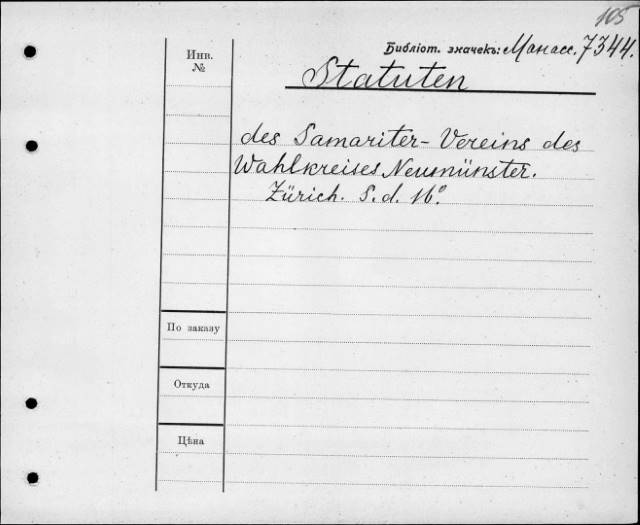 105
Библіот. значекъ: Манасс. 7344.
Инв.
№
Statuten
des Samariter-Vereins des
Wahlkreises Neumünster.
Zürich. S. d. 16º
По заказу
Откуда
Цѣна